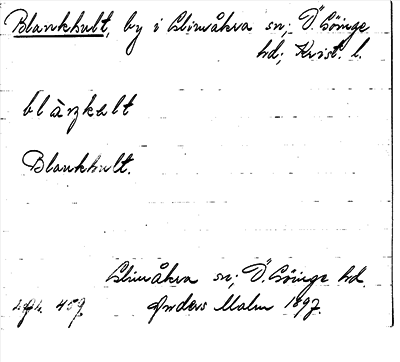 Blankhult, by i Glimåkra sn; Ö. Göinge
hd; Krist. l.
blàŋkelt
Blankhult.
Glimåkra sn; Ö. Göinge hd.
Anders Malm 1897.